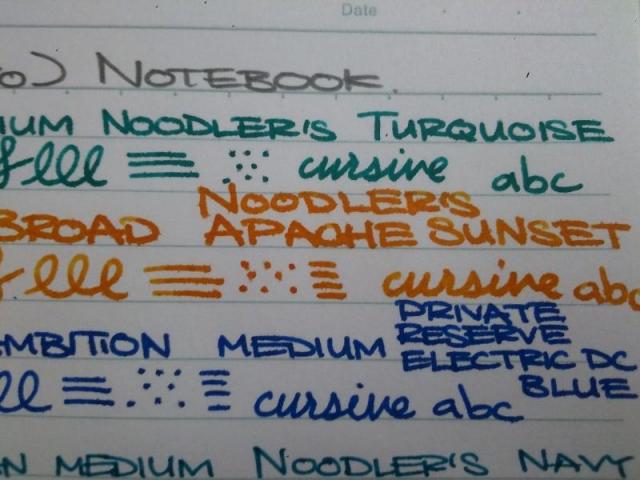 Date
NOTEBOOK.
NOODLER'S TURQUOISE
cursive abc
NOODLER'S
BROAD APACHE SUNSET
cursive abc
PRIVATE
RESERVE
AMBITION MEDIUM ELECTRIC DC
BLUE
cursive abc
MEDIUM NOODLER'S NAVY